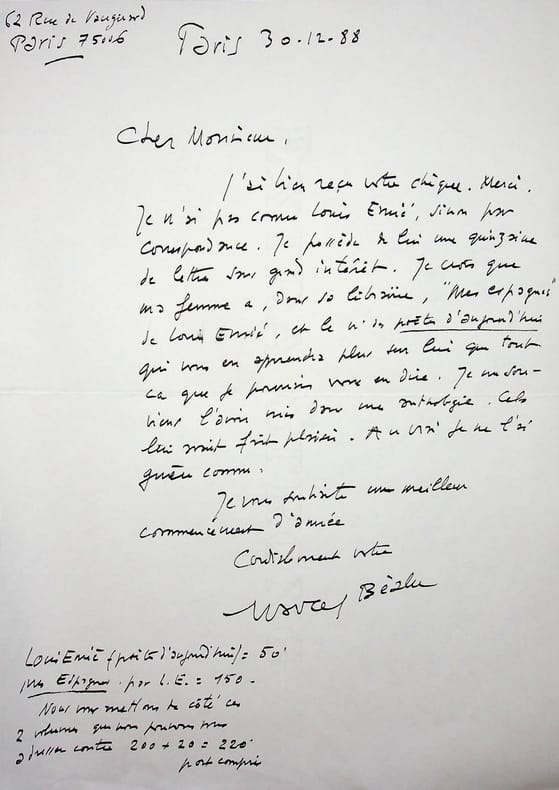 62 Rue de Vaugirard
Paris 75006
Paris 30-12-88
Cher Monsieur,
J'ai bien reçu votre chèque. Merci.
Je n'ai pas connu Louis Emié, sinon par
correspondance. Je possède de lui une quinzaine
de lettres sans grand intérêt. Je crois que
ma femme a, dans sa librairie, "Mes Espagnes"
de Louis Emié, et le n° des poètes d'aujourd'hui
qui vous en apprendra plus sur lui que tout
ce que je pourrais vous en dire. Je me sou-
viens l'avoir mis dans une anthologie. Cela
lui avait fait plaisir. Au vrai je ne l'ai
guère connu.
Je vous souhaite un meilleur
commencement d'année
Cordialement votre
Marcel Béalu
Louis Emié (poète d'aujourd'hui) = 50
Mes Espagnes. par L.E. = 150 -
Nous vous mettons de côté ces
2 volumes que nous pouvons vous
adresser contre 200 + 20 = 220
port compris